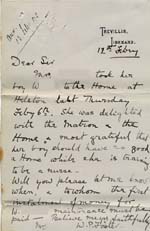 TREVILLIS,
LISKEARD.
12th Febry
Dear Sir
Mrs took her
boy W to the Home at
Helston last Thursday
Feby 6th. She was delighted
with the Matron & the
Home & most grateful that
her boy should have so good
a Home while she is training
to be a nurse.
Will you please let me know
when, & to whom the first
instalment of money for
W maintenance must be
paid Believe me yours faithfully